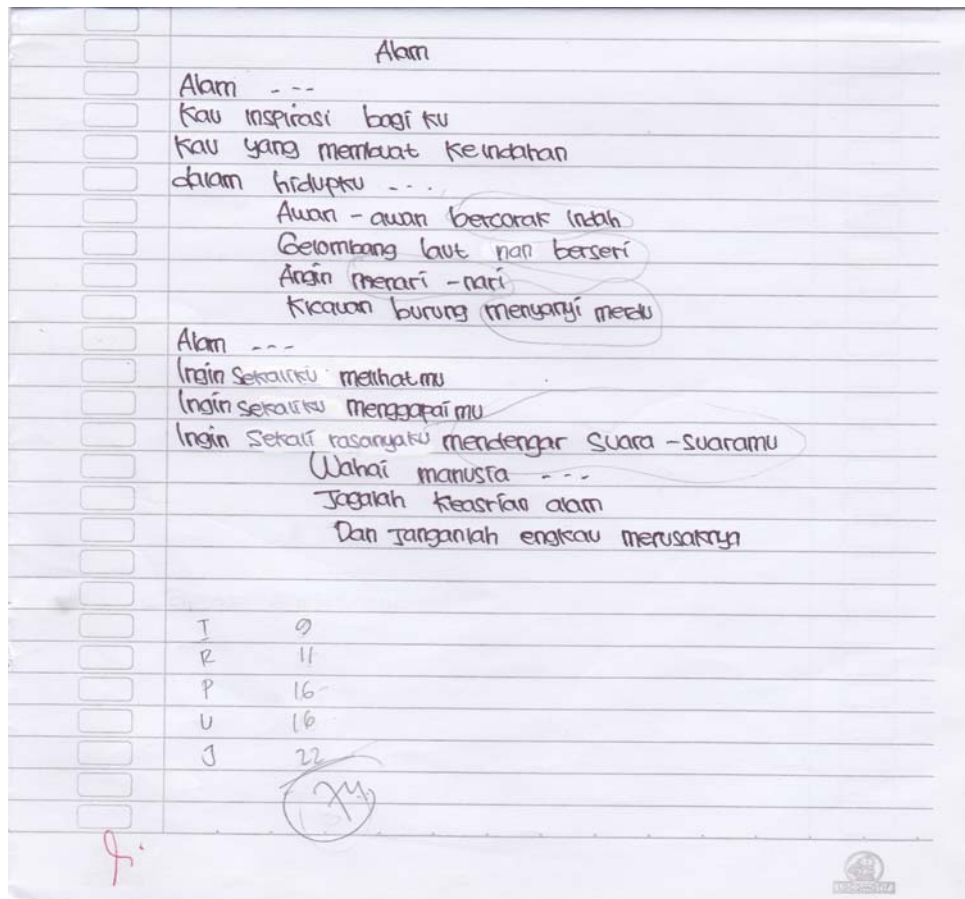 Alam
Alam ---
Kau inspirasi bagi ku
Kau yang membuat keindahan
dalam hidupku ...
Awan - awan bercorak indah
Gelombang laut nan berseri
Angin menari - nari
Kicauan burung menyanyi merdu
Alam ---
Ingin sekaliku melihatmu
Ingin sekaliku menggapaimu
Ingin sekali rasanyaku mendengar suara - suaramu
Wahai manusia ---
Jagalah keasrian alam
Dan janganlah engkau merusaknya
I 9
R 11
P 16
U 16
J 22
74